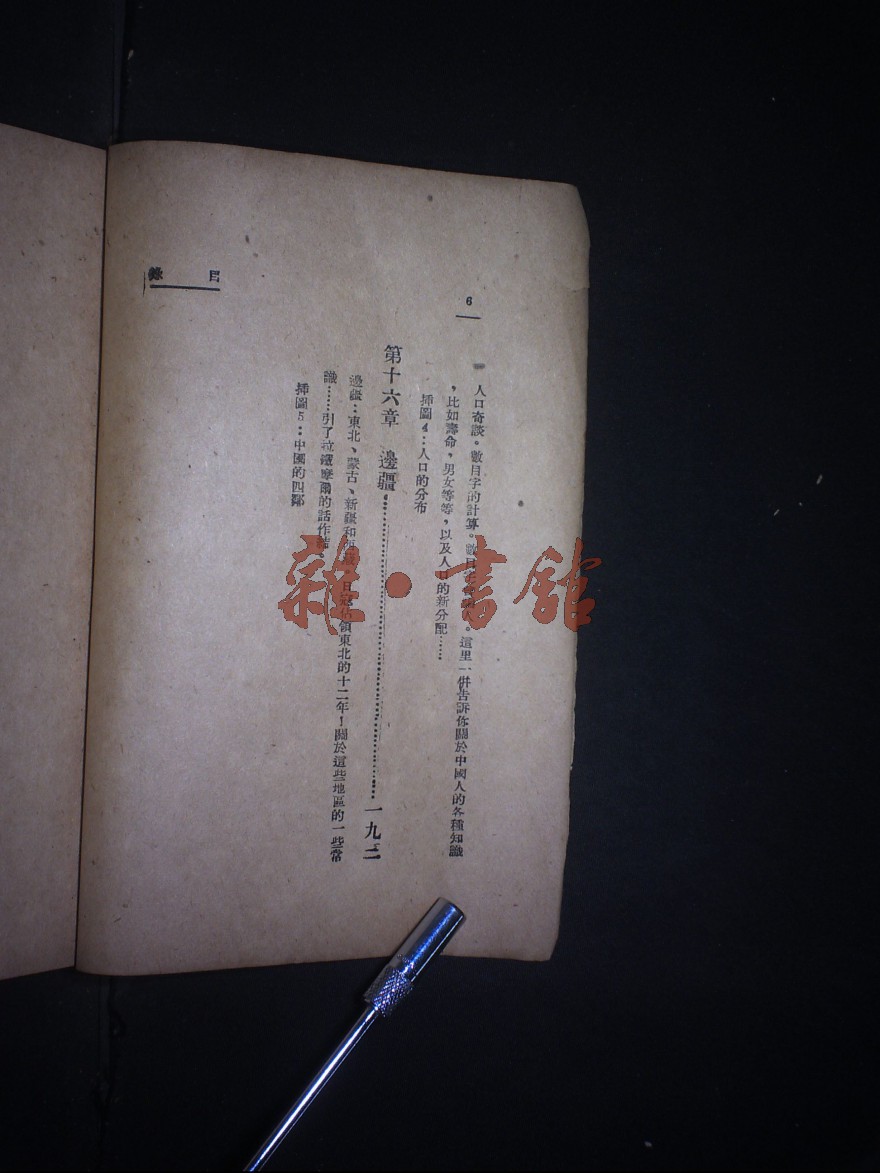 目錄
6
人口奇談。數目字的計算。數目字。這里一併告訴你關於中國人的各種知識
，比如壽命，男女等等，以及人口的新分配……
挿圖4：人口的分布
第十六章 邊疆………一九二
邊疆：東北、蒙古、新疆和西藏。日寇佔領東北的十二年！關於這些地區的一些常
識……引了拉鐵摩爾的話作結。
挿圖5：中國的四鄰
雜·書館